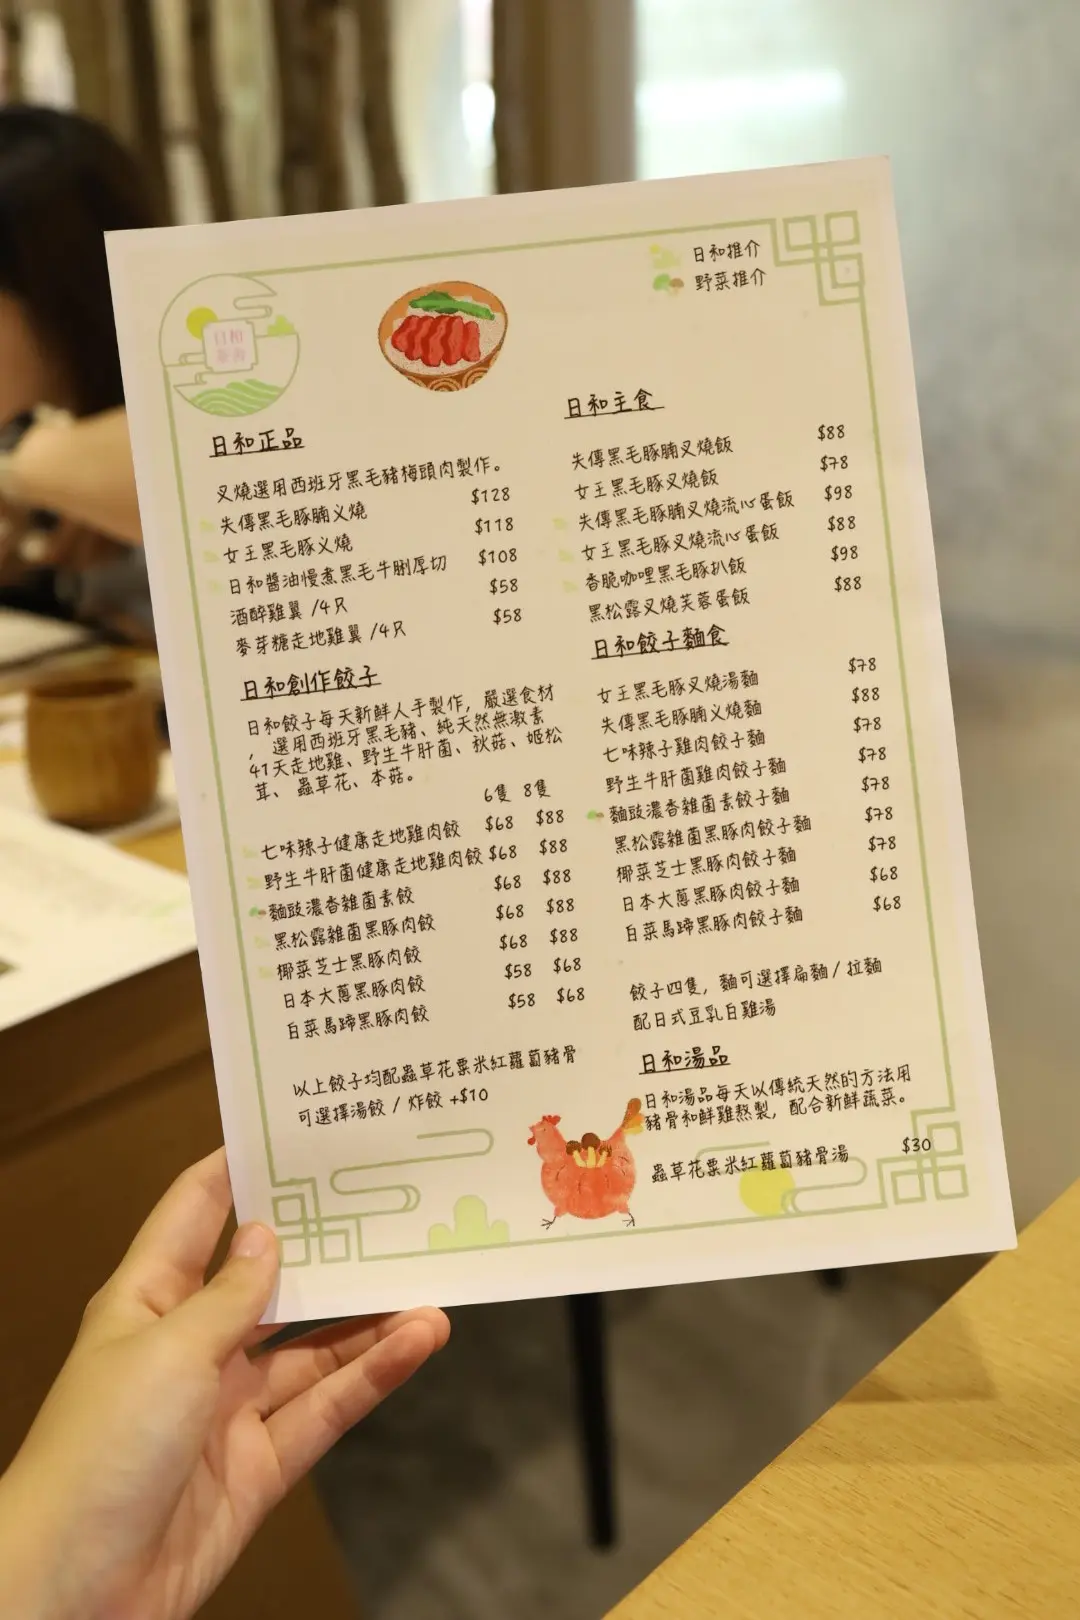 日和推介
野菜推介
日和正品
叉燒選用西班牙黑毛豬梅頭肉製作。
失傳黑毛豚腩义燒 $128
女王黑毛豚义燒 $118
日和醬油慢煮黑毛牛脷厚切 $108
酒醉雞翼 /4只 $58
麥芽糖走地雞翼 /4只 $58
日和創作餃子
日和餃子每天新鮮人手製作, 嚴選食材
, 選用西班牙黑毛豬、純天然無激素
41天走地雞、野生牛肝菌、秋菇、姬松
茸、蟲草花、本菇。
6隻 8隻
七味辣子健康走地雞肉餃 $68 $88
野生牛肝菌健康走地雞肉餃 $68 $88
麵豉濃香雜菌素餃 $68 $88
黑松露雜菌黑豚肉餃 $68 $88
椰菜芝士黑豚肉餃 $68 $88
日本大蔥黑豚肉餃 $58 $68
白菜馬蹄黑豚肉餃 $58 $68
以上餃子均配蟲草花粟米紅蘿蔔豬骨
可選擇湯餃 / 炸餃 +$10
日和主食
失傳黑毛豚腩叉燒飯 $88
女王黑毛豚叉燒飯 $78
失傳黑毛豚腩叉燒流心蛋飯 $98
女王黑毛豚叉燒流心蛋飯 $88
香脆咖哩黑毛豚扒飯 $98
黑松露叉燒芙蓉蛋飯 $88
日和餃子麵食
女王黑毛豚叉燒湯麵 $78
失傳黑毛豚腩义燒麵 $88
七味辣子雞肉餃子麵 $78
野生牛肝菌雞肉餃子麵 $78
麵豉濃香雜菌素餃子麵 $78
黑松露雜菌黑豚肉餃子麵 $78
椰菜芝士黑豚肉餃子麵 $78
日本大蔥黑豚肉餃子麵 $68
白菜馬蹄黑豚肉餃子麵 $68
餃子四隻, 麵可選擇扁麵 / 拉麵
配日式豆乳白雞湯
日和湯品
日和湯品每天以傳統天然的方法用
豬骨和鮮雞熬製, 配合新鮮蔬菜。
蟲草花粟米紅蘿蔔豬骨湯 $30